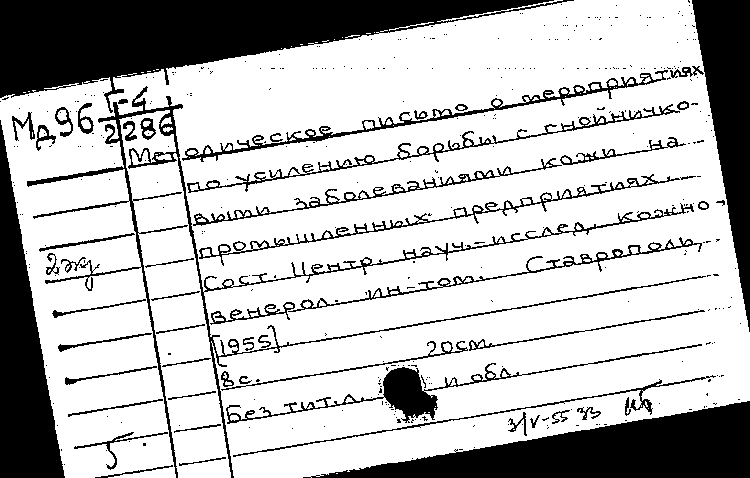 Мд96 Г-4
2286
Методическое письмо о мероприятиях
по усилению борьбы с гнойничко-
выми заболеваниями кожи на
промышленных предприятиях.
Сост. Центр. науч.-исслед. кожно-
венерол. ин-том. Ставрополь,
2 экз
[1955].
8с. 20см.
Без тит.л. и обл.
3/V-55
5.